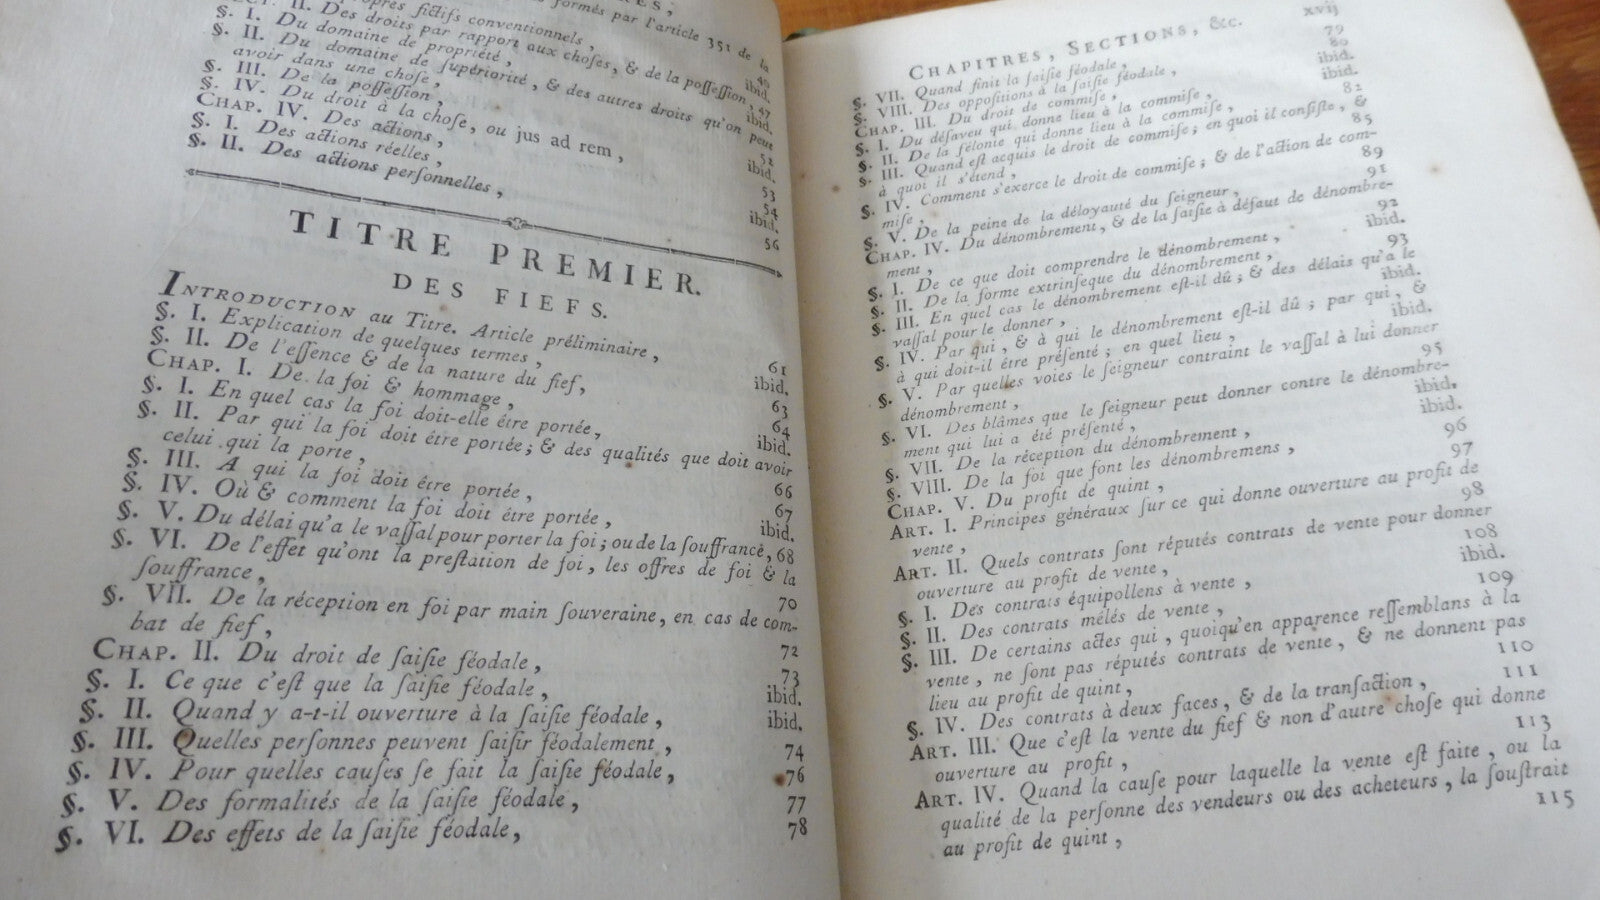 formés par l'article 351 de la
propres fictifs conventionnels,
II. Des droits par rapport aux choſes, & de la poſſeſſion, 47
§. I. Du domaine de propriété, ibid.
§. II. Du domaine de ſupériorité, & des autres droits qu'on peut
avoir dans une choſe, 52
§. III. De la poſſeſſion, ibid.
§. IV. Du droit à la choſe, ou jus ad rem, 53
CHAP. IV. Des actions, 54
§. I. Des actions réelles, ibid.
§. II. Des actions perſonnelles, 56
TITRE PREMIER.
DES FIEFS.
INTRODUCTION au Titre. Article préliminaire, 61
§. I. Explication de quelques termes, ibid.
§. II. De l'eſſence & de la nature du fief, 63
CHAP. I. De la foi & hommage, 64
§. I. En quel cas la foi doit-elle être portée, ibid.
§. II. Par qui la foi doit être portée; & des qualités que doit avoir
celui qui la porte, 66
§. III. A qui la foi doit être portée, 67
§. IV. Où & comment la foi doit être portée, ibid.
§. V. Du délai qu'a le vaſſal pour porter la foi; ou de la ſouffrance, 68
§. VI. De l'effet qu'ont la preſtation de foi, les offres de foi & la
ſouffrance, 70
§. VII. De la réception en foi par main ſouveraine, en cas de com-
bat de fief, 72
CHAP. II. Du droit de ſaiſie féodale, 73
§. I. Ce que c'eſt que la ſaiſie féodale, ibid.
§. II. Quand y a-t-il ouverture à la ſaiſie féodale, ibid.
§. III. Quelles perſonnes peuvent ſaiſir féodalement, 74
§. IV. Pour quelles cauſes ſe fait la ſaiſie féodale, 76
§. V. Des formalités de la ſaiſie féodale, 77
§. VI. Des effets de la ſaiſie féodale, 78
CHAPITRES, SECTIONS, &c. xvij
§. VII. Quand finit la ſaiſie féodale, 79
§. VIII. Des oppoſitions à la ſaiſie féodale, 80
CHAP. III. Du droit de commiſe, ibid.
§. I. Du déſaveu qui donne lieu à la commiſe, ibid.
§. II. De la félonie qui donne lieu à la commiſe, 82
§. III. Quand eſt acquis le droit de commiſe; en quoi il conſiſte, &
à quoi il s'étend, 85
§. IV. Comment s'exerce le droit de commiſe; & de l'action de com-
miſe, 89
§. V. De la peine de la déloyauté du ſeigneur, 91
CHAP. IV. Du dénombrement, & de la ſaiſie à défaut de dénombre-
ment, 92
§. I. De ce que doit comprendre le dénombrement, ibid.
§. II. De la forme extrinſeque du dénombrement, 93
§. III. En quel cas le dénombrement eſt-il dû; & des délais qu'a le
vaſſal pour le donner, ibid.
§. IV. Par qui, & à qui le dénombrement eſt-il dû; par qui, &
à qui doit-il être préſenté; en quel lieu, ibid.
§. V. Par quelles voies le ſeigneur contraint le vaſſal à lui donner
dénombrement, 95
§. VI. Des blâmes que le ſeigneur peut donner contre le dénombre-
ment qui lui a été préſenté, ibid.
§. VII. De la réception du dénombrement, ibid.
§. VIII. De la foi que font les dénombremens, 96
CHAP. V. Du profit de quint, 97
ART. I. Principes généraux ſur ce qui donne ouverture au profit de
vente, 98
ART. II. Quels contrats ſont réputés contrats de vente pour donner
ouverture au profit de vente, 108
§. I. Des contrats équipollens à vente, ibid.
§. II. Des contrats mêlés de vente, 109
§. III. De certains actes qui, quoiqu'en apparence reſſemblans à la
vente, ne ſont pas réputés contrats de vente, & ne donnent pas
lieu au profit de quint, 110
§. IV. Des contrats à deux faces, & de la tranſaction, 111
ART. III. Que c'eſt la vente du fief & non d'autre choſe qui donne
ouverture au profit, 113
ART. IV. Quand la cauſe pour laquelle la vente eſt faite, ou la
qualité de la perſonne des vendeurs ou des acheteurs, la ſouſtrait
au profit de quint, 115